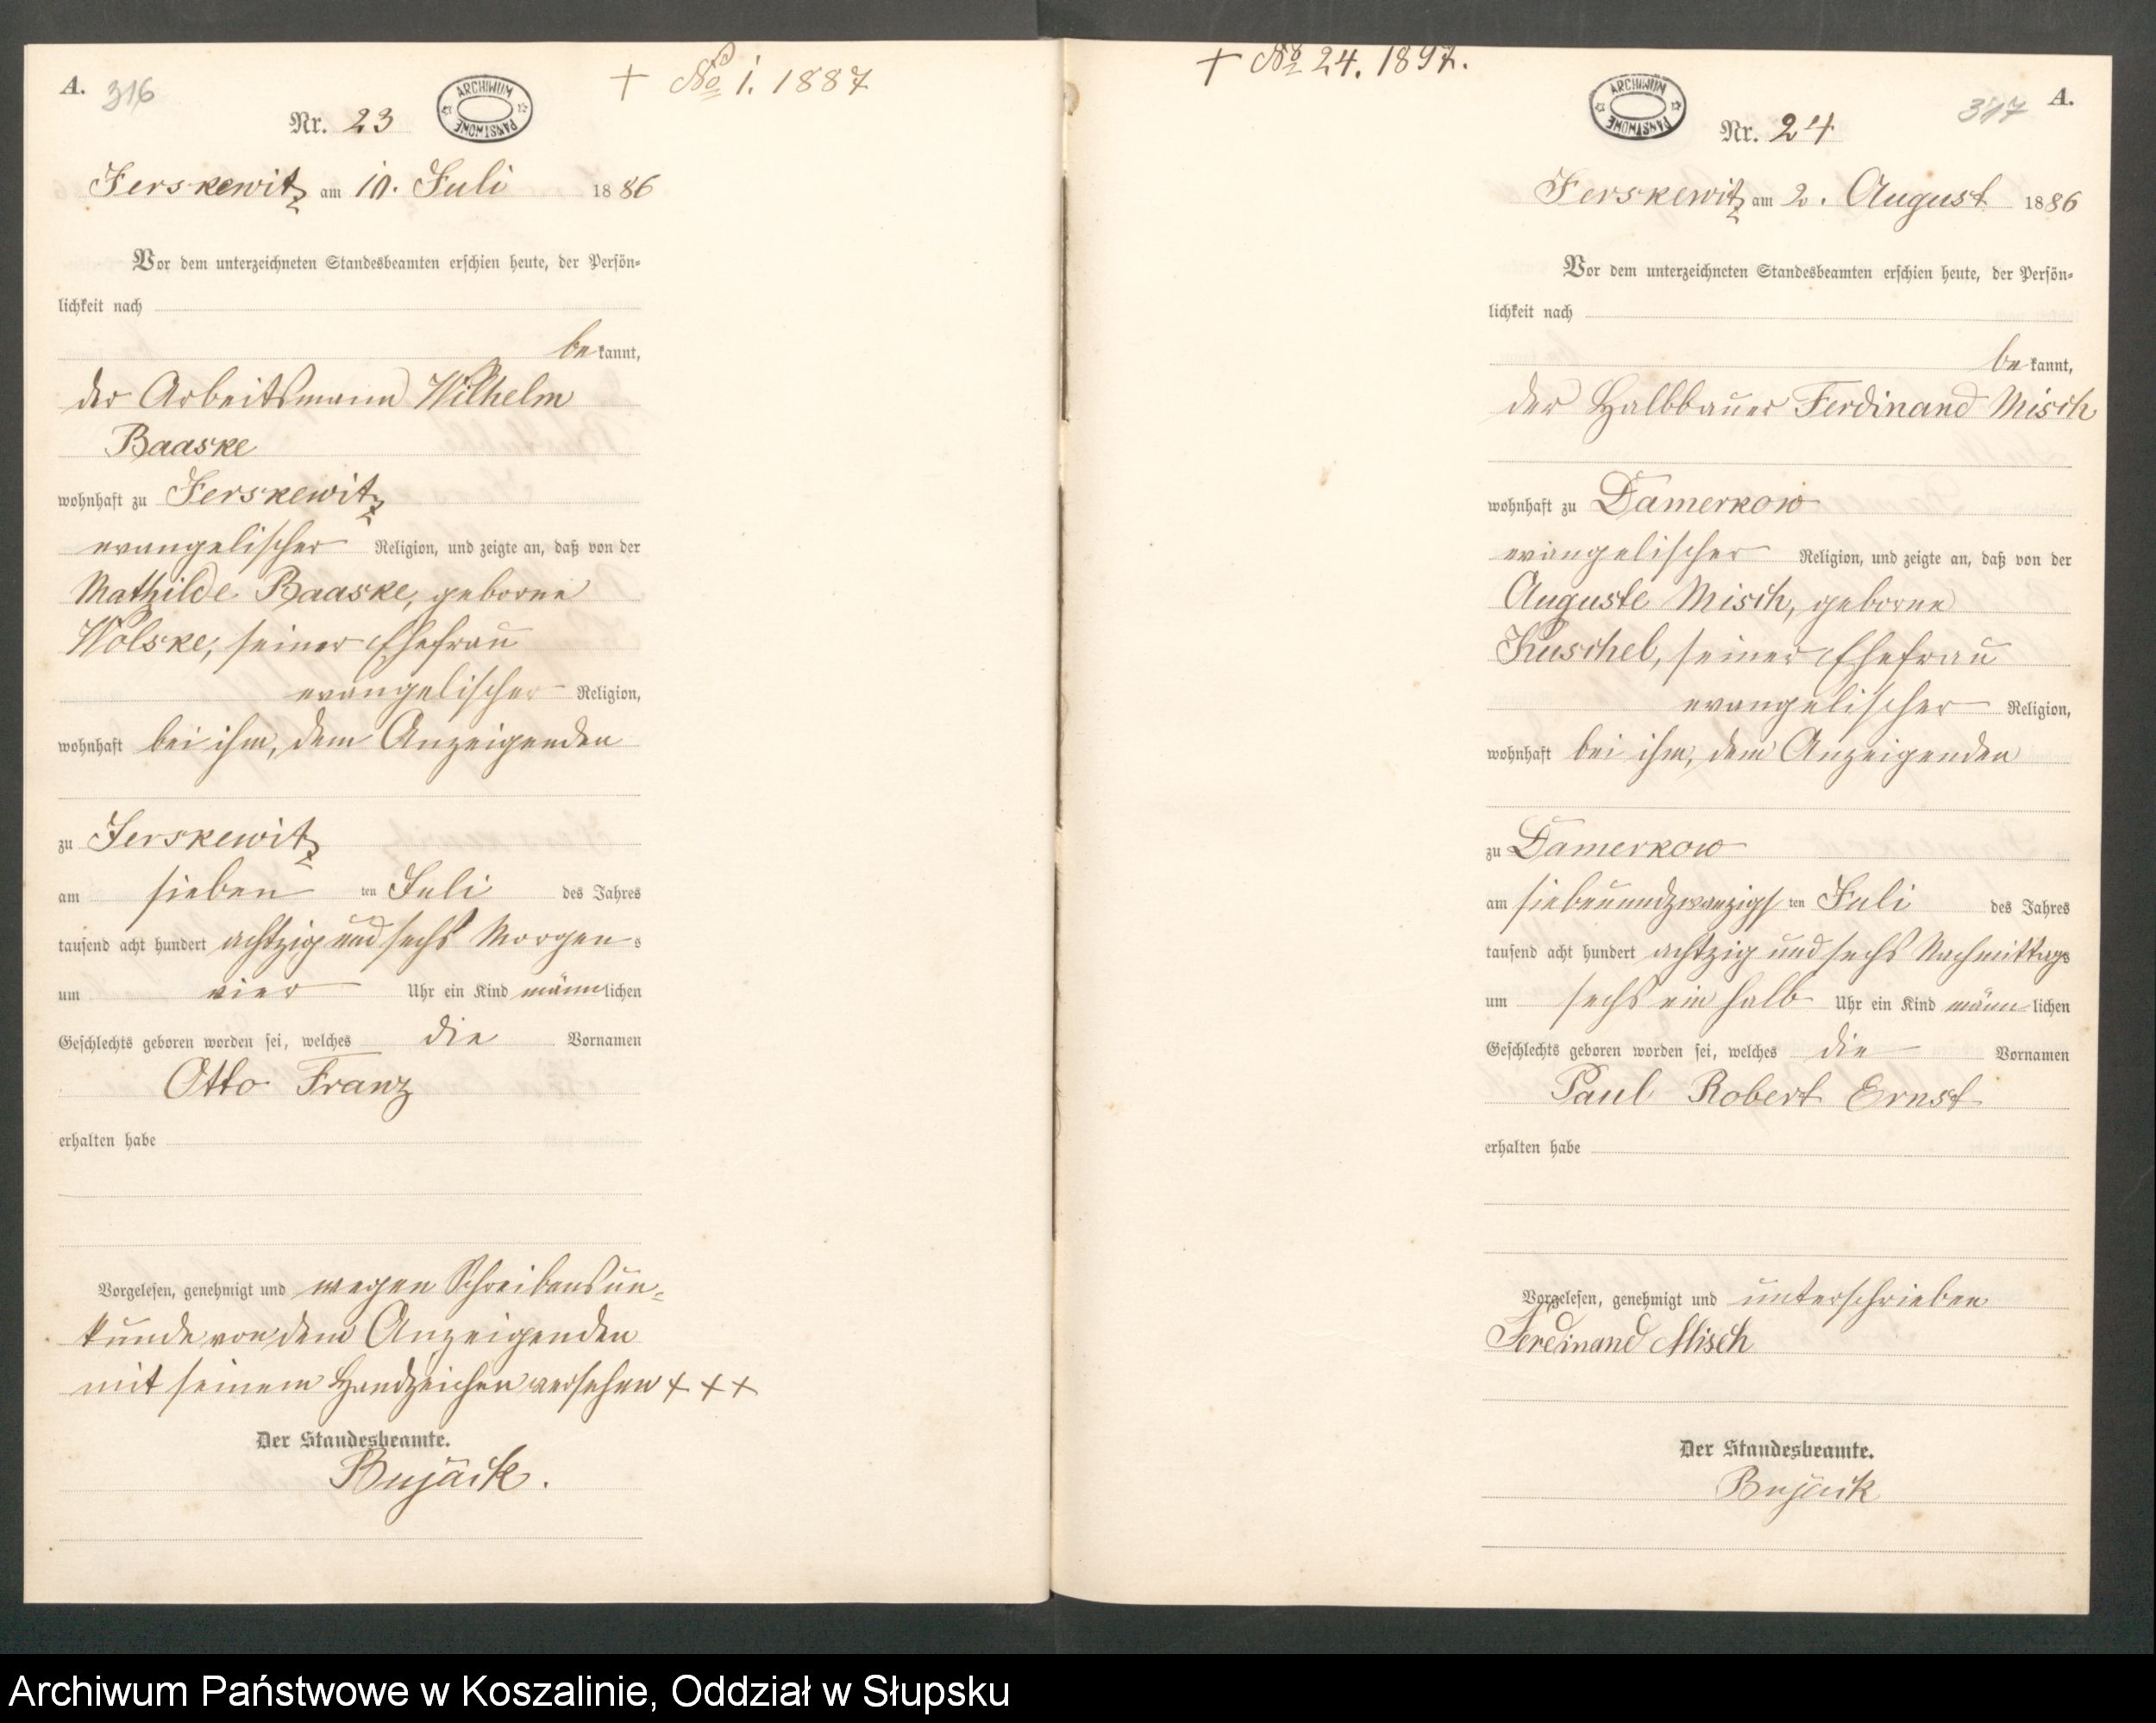 A. 316
+ No 1. 1887
ARCHIWUM PAŃSTWOWE
Nr. 23
Jerskewitz am 10. Juli 1886
Vor dem unterzeichneten Standesbeamten erschien heute, der Persön-
lichkeit nach
bekannt,
der Arbeitsmann Wilhelm
Baaske
wohnhaft zu Jerskewitz
evangelischer Religion, und zeigte an, daß von der
Mathilde Baaske, geborne
Wolske, seiner Ehefrau
evangelischer Religion,
wohnhaft bei ihm, dem Anzeigenden
zu Jerskewitz
am sieben ten Juli des Jahres
tausend acht hundert achtzig und sechs Morgens
um vier Uhr ein Kind männlichen
Geschlechts geboren worden sei, welches die Vornamen
Otto Franz
erhalten habe
Vorgelesen, genehmigt und wegen Schreibensun-
kunde von dem Anzeigenden
mit seinem Handzeichen versehen + + +
Der Standesbeamte.
Bujack.
+ No 24. 1897.
ARCHIWUM PAŃSTWOWE
317 A.
Nr. 24
Jerskewitz am 2. August 1886
Vor dem unterzeichneten Standesbeamten erschien heute, der Persön-
lichkeit nach
bekannt,
der Halbbauer Ferdinand Misch
wohnhaft zu Damerkow
evangelischer Religion, und zeigte an, daß von der
Auguste Misch, geborne
Kuschel, seiner Ehefrau
evangelischer Religion,
wohnhaft bei ihm, dem Anzeigenden
zu Damerkow
am siebenundzwanzigsten Juli des Jahres
tausend acht hundert achtzig und sechs Nachmittags
um sechs ein halb Uhr ein Kind männlichen
Geschlechts geboren worden sei, welches die Vornamen
Paul Robert Ernst
erhalten habe
Vorgelesen, genehmigt und unterschrieben
Ferdinand Misch
Der Standesbeamte.
Bujack
Archiwum Państwowe w Koszalinie, Oddział w Słupsku